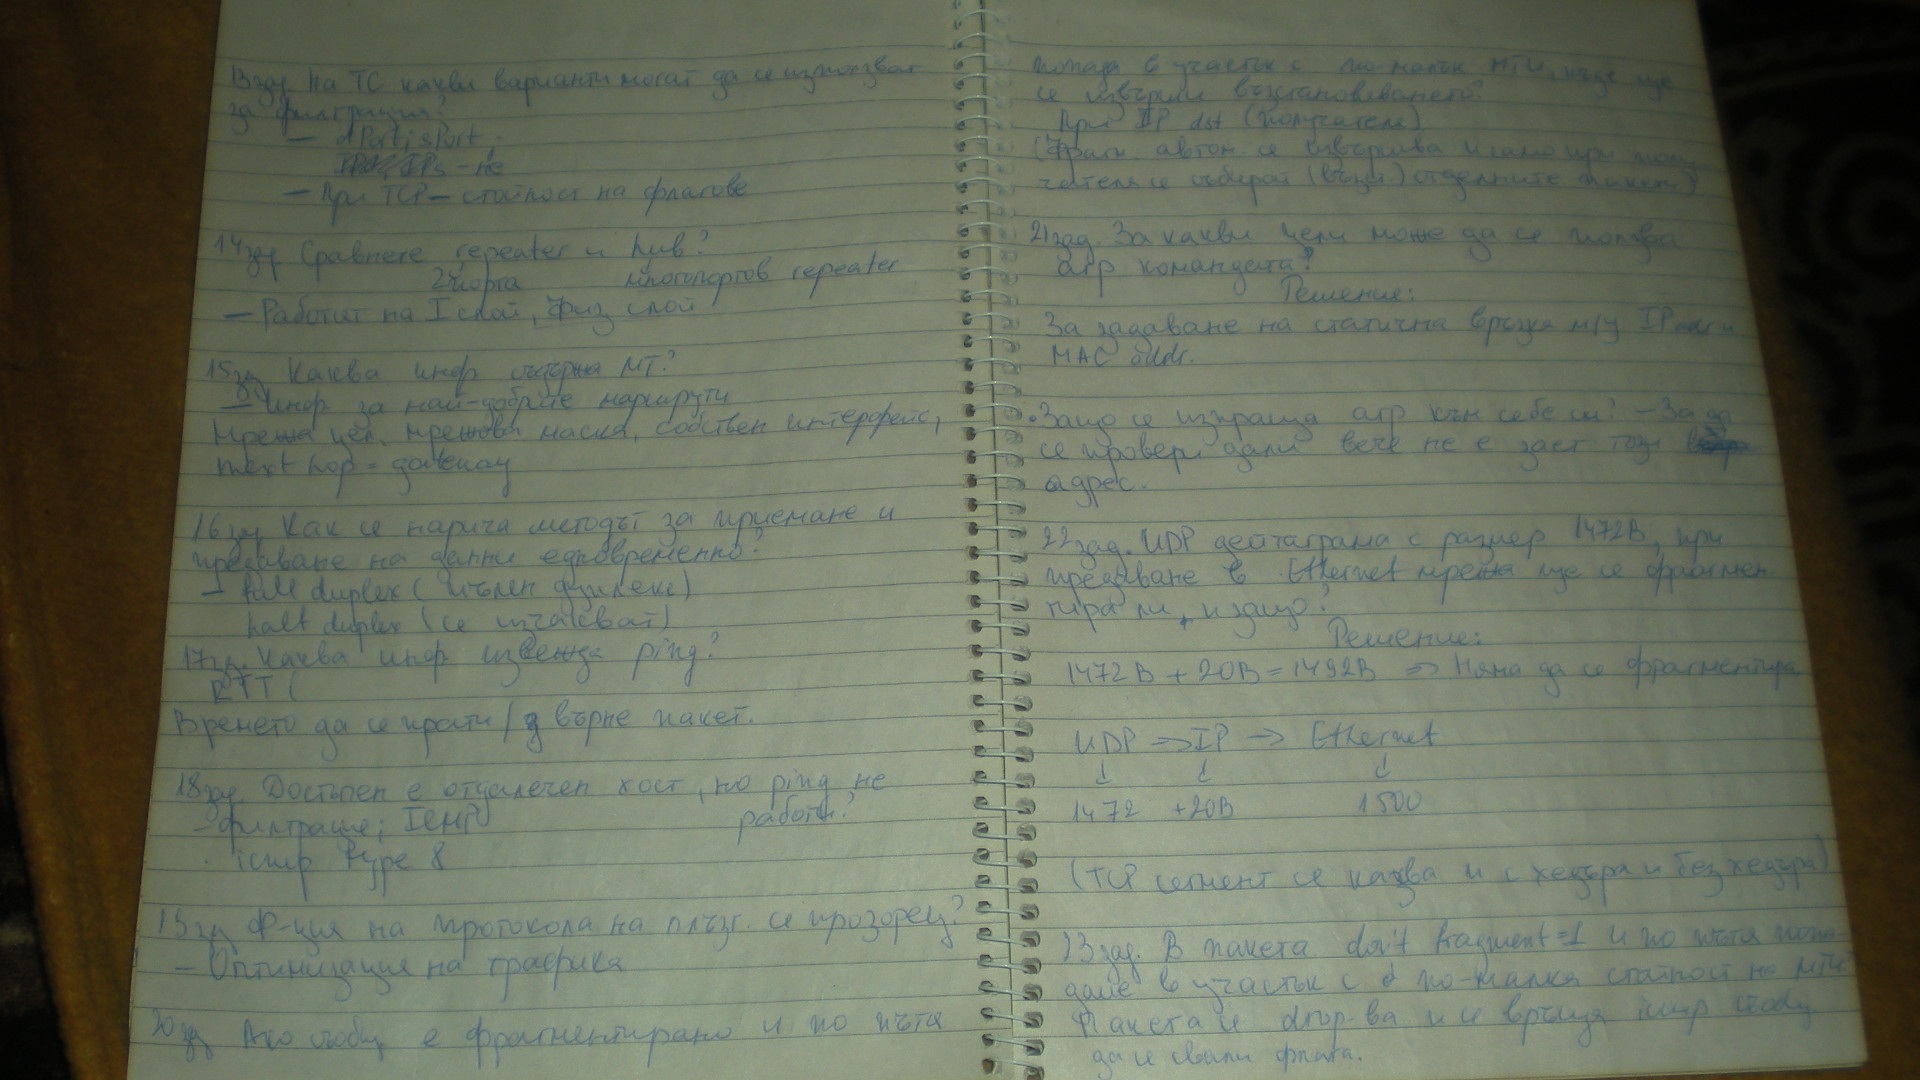 13зад. На ТС какви варианти могат да се използват
за филтрация?
– dPort; sPort;
IPs – не
– При TCP – стойност на флагове
14зад. Сравнете repeater и hub?
2 порта многопортов repeater
– Работят на I слой, физ слой
15зад. Каква инф съдържа МТ?
– инф за най-добрите маршрути
Мрежа цел, мрежова маска, собствен интерфейс,
next hop = gateway
16зад. Как се нарича методът за приемане и
предаване на данни едновременно?
– full duplex (пълен дуплекс)
half duplex (се изчакват)
17зад. Каква инф извежда ping?
RTT (
Времето да се прати / върне пакет.
18зад. Достъпен е отдалечен хост, но ping не
– филтрация; ICMP работи?
icmp type 8
19зад. Ф-ция на протокола на плъзг. се прозорец?
– Оптимизация на трафика
20зад. Ако съобщ е фрагментирано и по пътя
попада в участък с по-малък MTU, къде ще
се извърши възстановяването?
При IP dst (получателя)
(Фрагм. автом. се извършва и само при полу
чателя се събират (възст.) отделните пакети)
21зад. За какви цели може да се ползва
arp командата?
Решение:
За задаване на статична връзка м/у IP addr и
MAC addr.
• Защо се изпраща arp към себе си? – За да
се провери дали вече не е зает този
адрес.
22зад. UDP дейтаграма с размер 1472B, при
предаване в Ethernet мрежа ще се фрагмен
тира ли, и защо?
Решение:
1472B + 20B = 1492B => Няма да се фрагментира
UDP -> IP -> Ethernet
↓ ↓ ↓
1472 +20B 1500
(TCP сегмент се казва и с хедъра и без хедъра)
23зад. В пакета don't fragment=1 и по пътя попа-
даме в участък с по-малка стойност на MTU
Пакета се drop-ва и се връща icmp съобщ
да се свали флага.